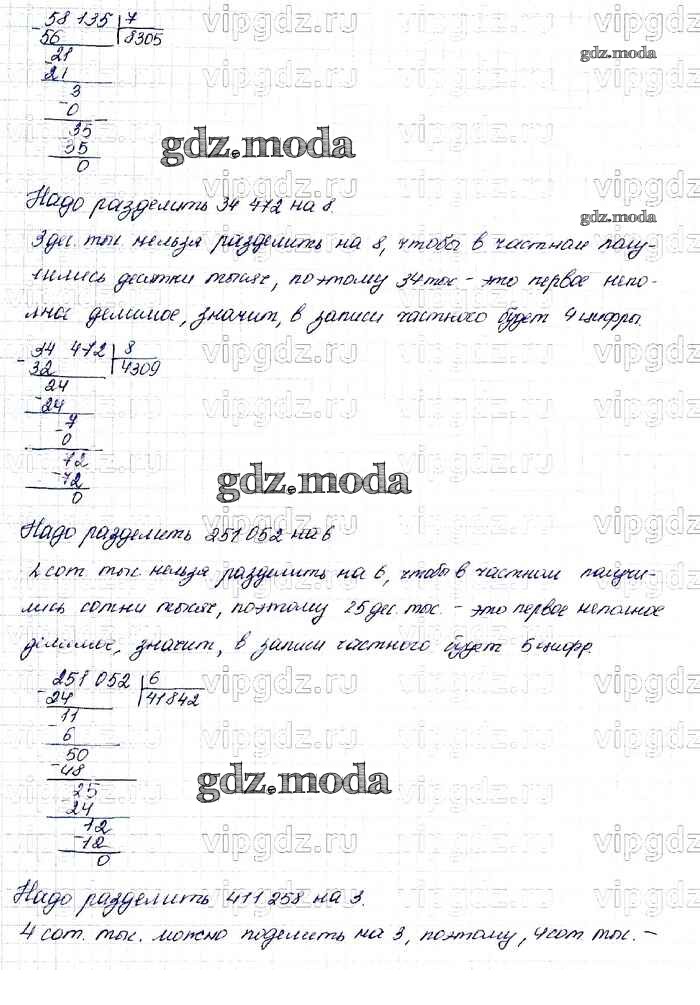 58 135 7
56 8305
21
21
3
0
35
35
0
gdz.moda
gdz.moda
Надо разделить 34 472 на 8.
gdz.moda
3 дес. тыс. нельзя разделить на 8, чтобы в частном полу-
чились десятки тысяч, поэтому 34 тыс – это первое непо-
лное делимое, значит, в записи частного будет 4 цифры.
34 472 8
32 4309
24
24
7
0
72
72
0
gdz.moda
Надо разделить 251 052 на 6
2 сот. тыс. нельзя разделить на 6, чтобы в частном получи-
лись сотни тысяч, поэтому 25 дес. тыс. – это первое неполное
делимое, значит, в записи частного будет 5 цифр.
251 052 6
24 41842
11
6
50
48
25
24
12
12
0
gdz.moda
Надо разделить 411 258 на 3.
4 сот. тыс. можно поделить на 3, поэтому, 4 сот. тыс. –
vipgdz.ru